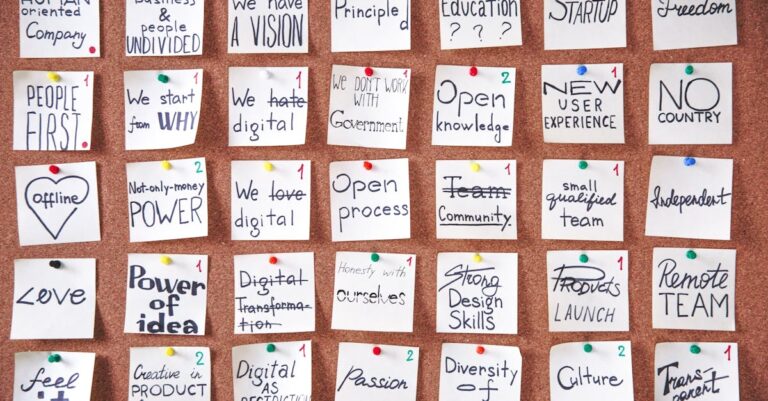 HUMAN
oriented
Company
business
&
people
UNDIVIDED
We have
A VISION
Principled
Education
? ? ?
STARTUP
Freedom
1
PEOPLE
FIRST
1
We start
from WHY
1
We hate
digital
1
We DON'T WORK
WITH
Government
2
Open
knowledge
1
NEW
USER
EXPERIENCE
NO
COUNTRY
offline
2
Not-only-money
POWER
1
We love
digital
Open
process
1
Team
Community
1
small
qualified
team
Independent
Love
1
Power
of
idea
1
Digital
Transforma-
tion
1
Honesty with
ourselves
Strong
Design
Skills
1
Products
LAUNCH
Remote
TEAM
feel
2
Creative in
PRODUCT
1
Digital
AS
2
Passion
Diversity
of
2
Culture
1
Trans-
parent